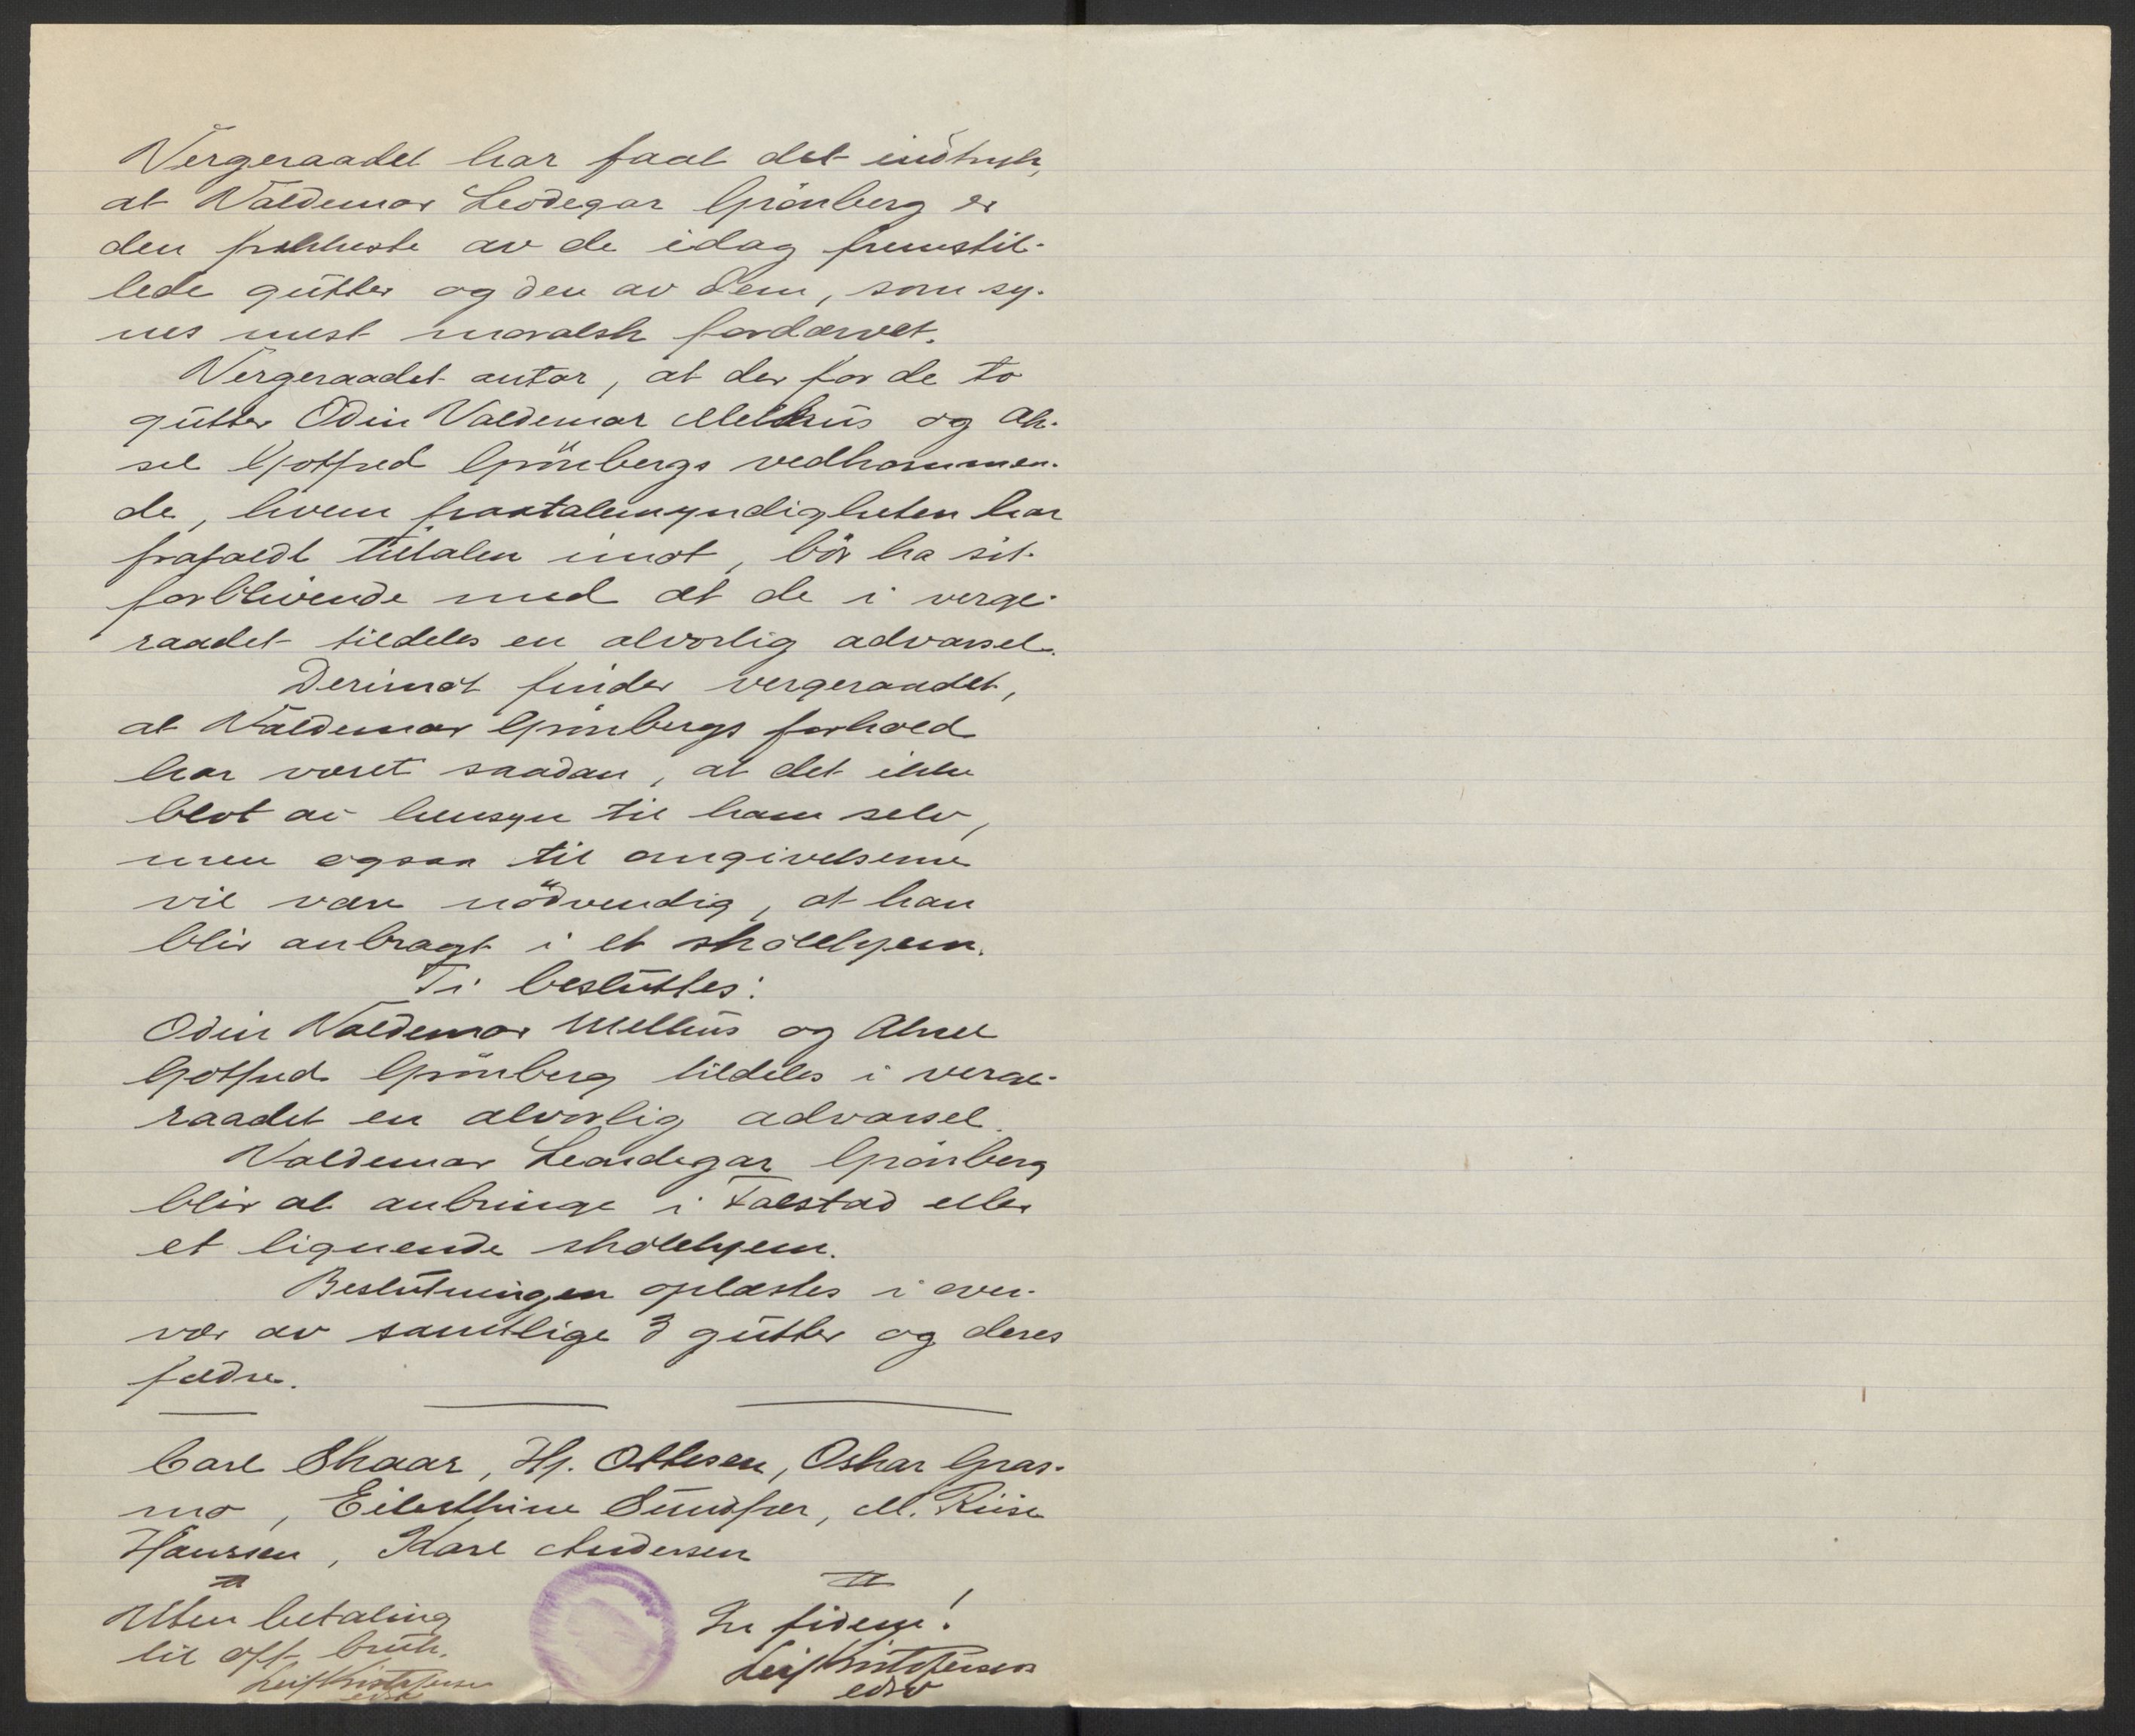 Vergeraadet har faat det indtryk,
at Valdemar Leodegar Grönberg er
den frekkeste av de idag fremstil-
lede gutter og den av dem, som sy-
nes mest moralsk fordærvet.
Vergeraadet antar, at der for de to
gutter Odin Valdemar Melhus og Ak-
sel Gotfred Grönbergs vedkommen-
de, hvem paatalemyndigheten har
frafaldt tiltalen imot, bör ha sit
forblivende med at de i verge-
raadet tildeles en alvorlig advarsel.
Derimot finder vergeraadet,
at Valdemar Grönbergs forhold
har været saadan, at det ikke
blot av hensyn til ham selv,
men ogsaa til omgivelserne
vil være nödvendig, at han
blir anbragt i et skolehjem.
Ti besluttes:
Odin Valdemar Melhus og Aksel
Gotfred Grönberg tildeles i verge-
raadet en alvorlig advarsel.
Valdemar Leondegar Grönberg
blir at anbringe i Falstad eller
et lignende skolehjem.
Beslutningen oplæstes i over-
vær av samtlige 3 gutter og deres
fædre.
Carl Skaar, Hj. Ottesen, Oskar Gras-
mo, Eilerthine Sundfær, M. Riise
Hanssen, Karl Andersen
Uten betaling
til off. bruk.
Leif Kristofersen
edsv
In fidem!
Leif Kristofersen
edsv